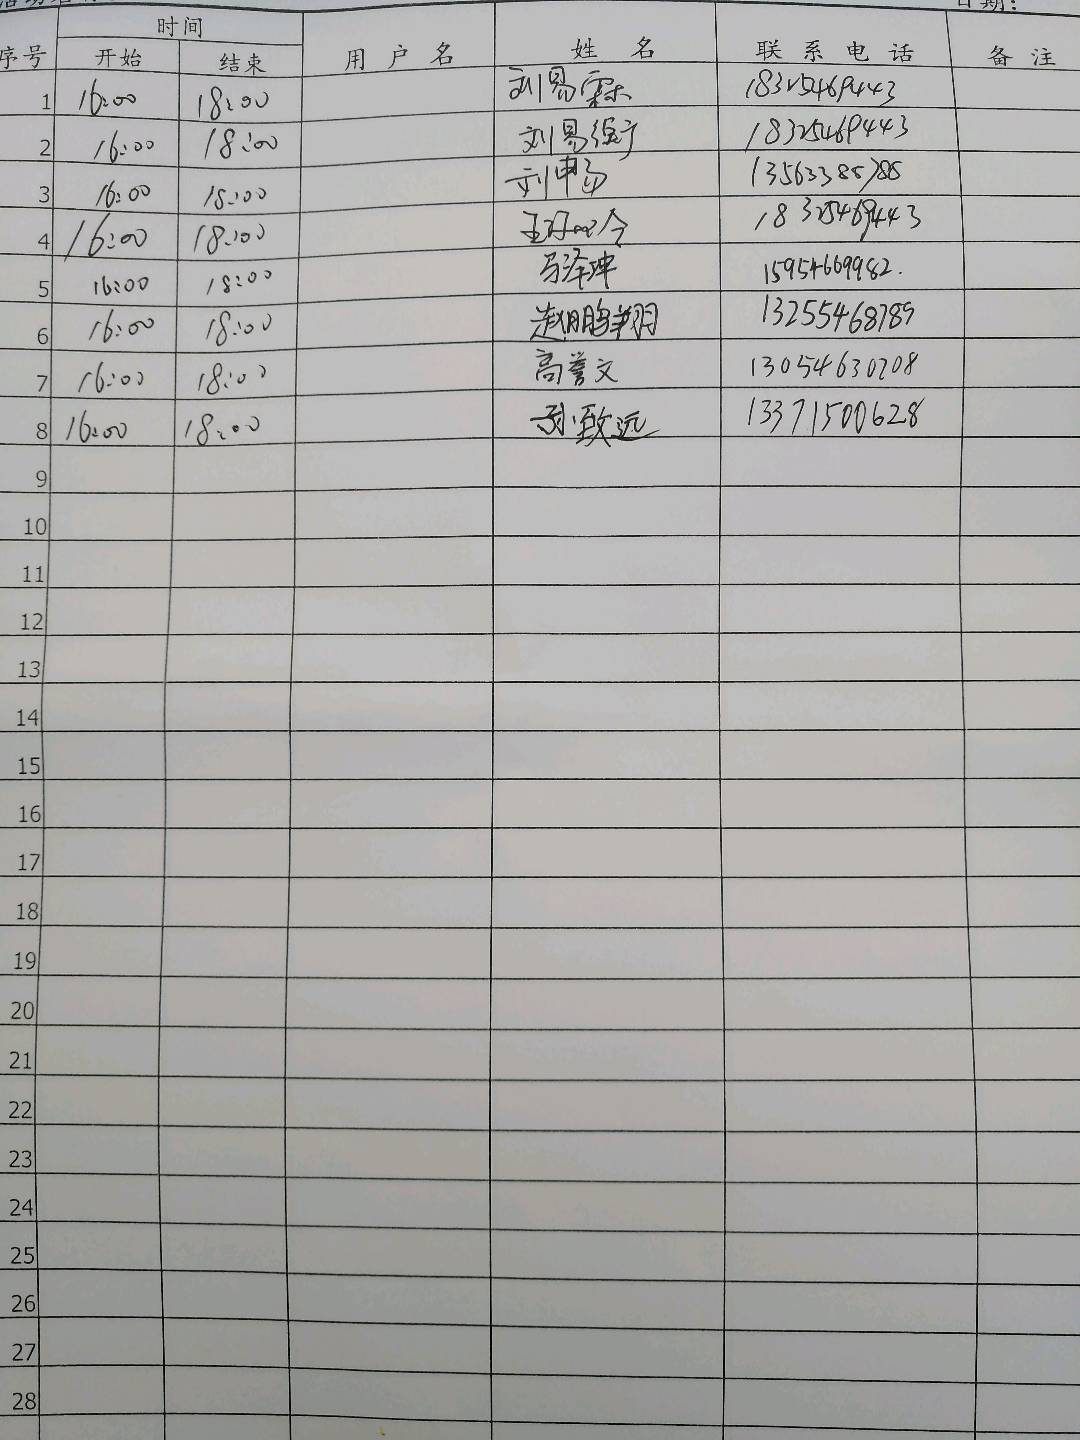 时间
序号 开始 结束 用户名 姓名 联系电话 备注
1 16:00 18:00 刘易霖 18325469443
2 16:00 18:00 刘易 18325469443
3 16:00 18:00 刘畅 13563385788
4 16:00 18:00 18325469443
5 16:00 18:00 马泽坤 15954669982.
6 16:00 18:00 赵鹏翔 13255468789
7 16:00 18:00 高誉文 13054630208
8 16:00 18:00 孙致远 13371500628
9
10
11
12
13
14
15
16
17
18
19
20
21
22
23
24
25
26
27
28